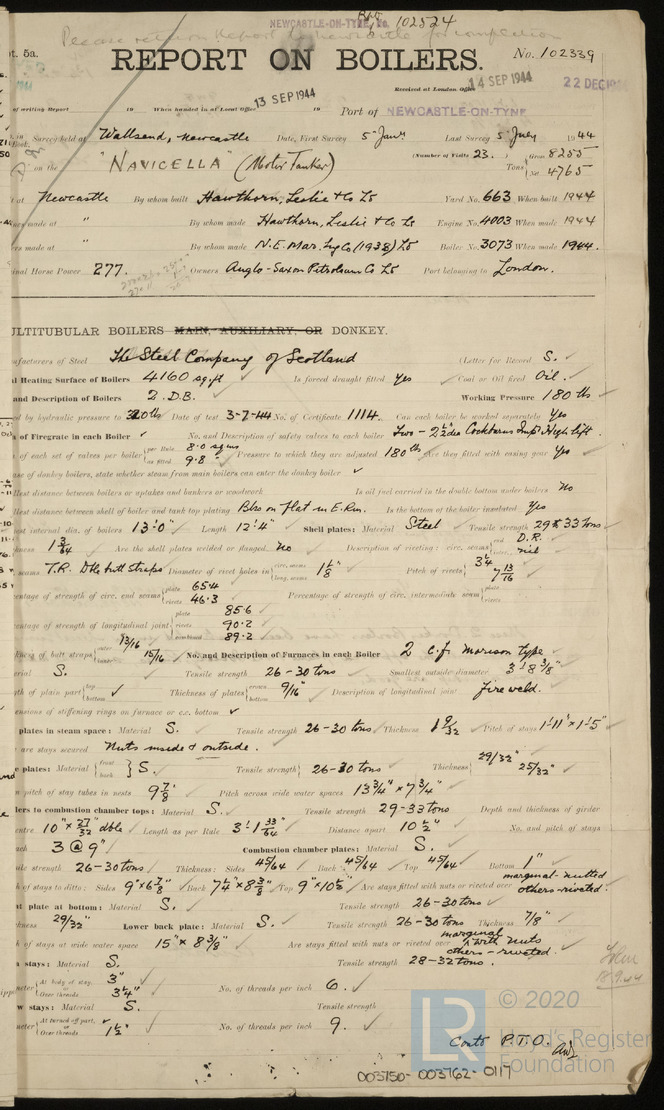 NEWCASTLE-ON-TYNE Rpt. No. 102524
Please return Report to Newcastle for completion
pt. 5a.
REPORT ON BOILERS.
No. 102339
Received at London Office
14 SEP 1944
22 DEC 194
of writing Report 19 When handed in at Local Office 13 SEP 1944 19 Port of NEWCASTLE-ON-TYNE
Survey held at Wallsend, Newcastle Date, First Survey 5 Jan Last Survey 5 July 1944
(Number of Visits 23.)
on the "NAVICELLA" (Motor Tanker) Tons Gross 8255
Net 4765
at Newcastle By whom built Hawthorn, Leslie & Co Ld Yard No. 663 When built 1944
made at " By whom made Hawthorn, Leslie & Co Ld Engine No. 4003 When made 1944
made at " By whom made N.E. Mar. Eng Co (1938) Ld Boiler No. 3073 When made 1944.
nal Horse Power 277. Owners Anglo-Saxon Petroleum Co Ld Port belonging to London.
ULTITUBULAR BOILERS MAIN, AUXILIARY, OR DONKEY.
nufacturers of Steel The Steel Company of Scotland (Letter for Record S.
l Heating Surface of Boilers 4160 sq.ft Is forced draught fitted Yes Coal or Oil fired Oil.
and Description of Boilers 2 D.B. Working Pressure 180 lbs
ed by hydraulic pressure to 320 lbs Date of test 3-7-44 No. of Certificate 1114. Can each boiler be worked separately Yes
of Firegrate in each Boiler No. and Description of safety valves to each boiler Two - 2½" dia Cockburns Impd High lift.
of each set of valves per boiler per Rule 8.0 sq ins
as fitted 9.8 " Pressure to which they are adjusted 180 lbs Are they fitted with easing gear Yes
se of donkey boilers, state whether steam from main boilers can enter the donkey boiler
llest distance between boilers or uptakes and bunkers or woodwork Is oil fuel carried in the double bottom under boilers No
llest distance between shell of boiler and tank top plating Blrs on flat in E.Rm. Is the bottom of the boiler insulated Yes
est internal dia. of boilers 13'0" Length 12'4" Shell plates: Material Steel Tensile strength 29 & 33 tons
kness 1 3/64 Are the shell plates welded or flanged. No Description of riveting: circ. seams end D.R.
inter. nil
seams T.R. Dble butt straps Diameter of rivet holes in circ. seams
long. seams 1 1/8" Pitch of rivets 3¼
7 13/16
centage of strength of circ. end seams plate 65.4
rivets 46.3 Percentage of strength of circ. intermediate seam plate
rivets
centage of strength of longitudinal joint plate 85.6
rivets 90.2
combined 89.2
kness of butt straps outer 13/16
inner 15/16 No. and Description of Furnaces in each Boiler 2 C.F. Morison type
erial S. Tensile strength 26-30 tons Smallest outside diameter 3'8⅜"
gth of plain part top
bottom Thickness of plates crown
bottom 9/16" Description of longitudinal joint fire weld.
ensions of stiffening rings on furnace or c.c. bottom
plates in steam space: Material S. Tensile strength 26-30 tons Thickness 1 9/32 Pitch of stays 1'11" x 1'5"
are stays secured Nuts inside & outside.
e plates: Material front
back S. Tensile strength 26-30 tons Thickness 29/32"
25/32"
pitch of stay tubes in nests 9⅞ Pitch across wide water spaces 13¾" x 7¾"
lers to combustion chamber tops: Material S. Tensile strength 29-33 tons Depth and thickness of girder
entre 10" x 27/32 dble Length as per Rule 3'1 33/64 Distance apart 10½" No. and pitch of stays
ach 3 @ 9" Combustion chamber plates: Material S.
ile strength 26-30 tons Thickness: Sides 45/64 Back 45/64 Top 45/64 Bottom 1"
h of stays to ditto: Sides 9" x 6⅞" Back 7¼" x 8⅜ Top 9" x 10½" Are stays fitted with nuts or riveted over marginal-nutted
others-riveted.
t plate at bottom: Material S. Tensile strength 26-30 tons
kness 29/32" Lower back plate: Material S. Tensile strength 26-30 tons Thickness 7/8"
h of stays at wide water space 15" x 8⅜" Are stays fitted with nuts or riveted over marginal with nuts
others - riveted.
n stays: Material S. Tensile strength 28-32 tons.
meter At body of stay, 3"
Over threads 3¼" No. of threads per inch 6.
w stays: Material S. Tensile strength
meter At turned off part,
Over threads 1½" No. of threads per inch 9.
18.9.44
Contd P.T.O.
LR © 2020
Lloyd's Register
Foundation
003750-003762-0117